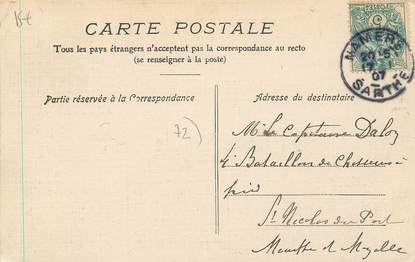 CARTE POSTALE
Tous les pays étrangers n'acceptent pas la correspondance au recto
(se renseigner à la poste)
Partie réservée à la Correspondance
Adresse du destinataire
MAMERS
07
SARTHE
72)
M. le Capitaine Daloz
4e Bataillon de Chasseurs à
pied
St Nicolas du Port
Meurthe et Moselle